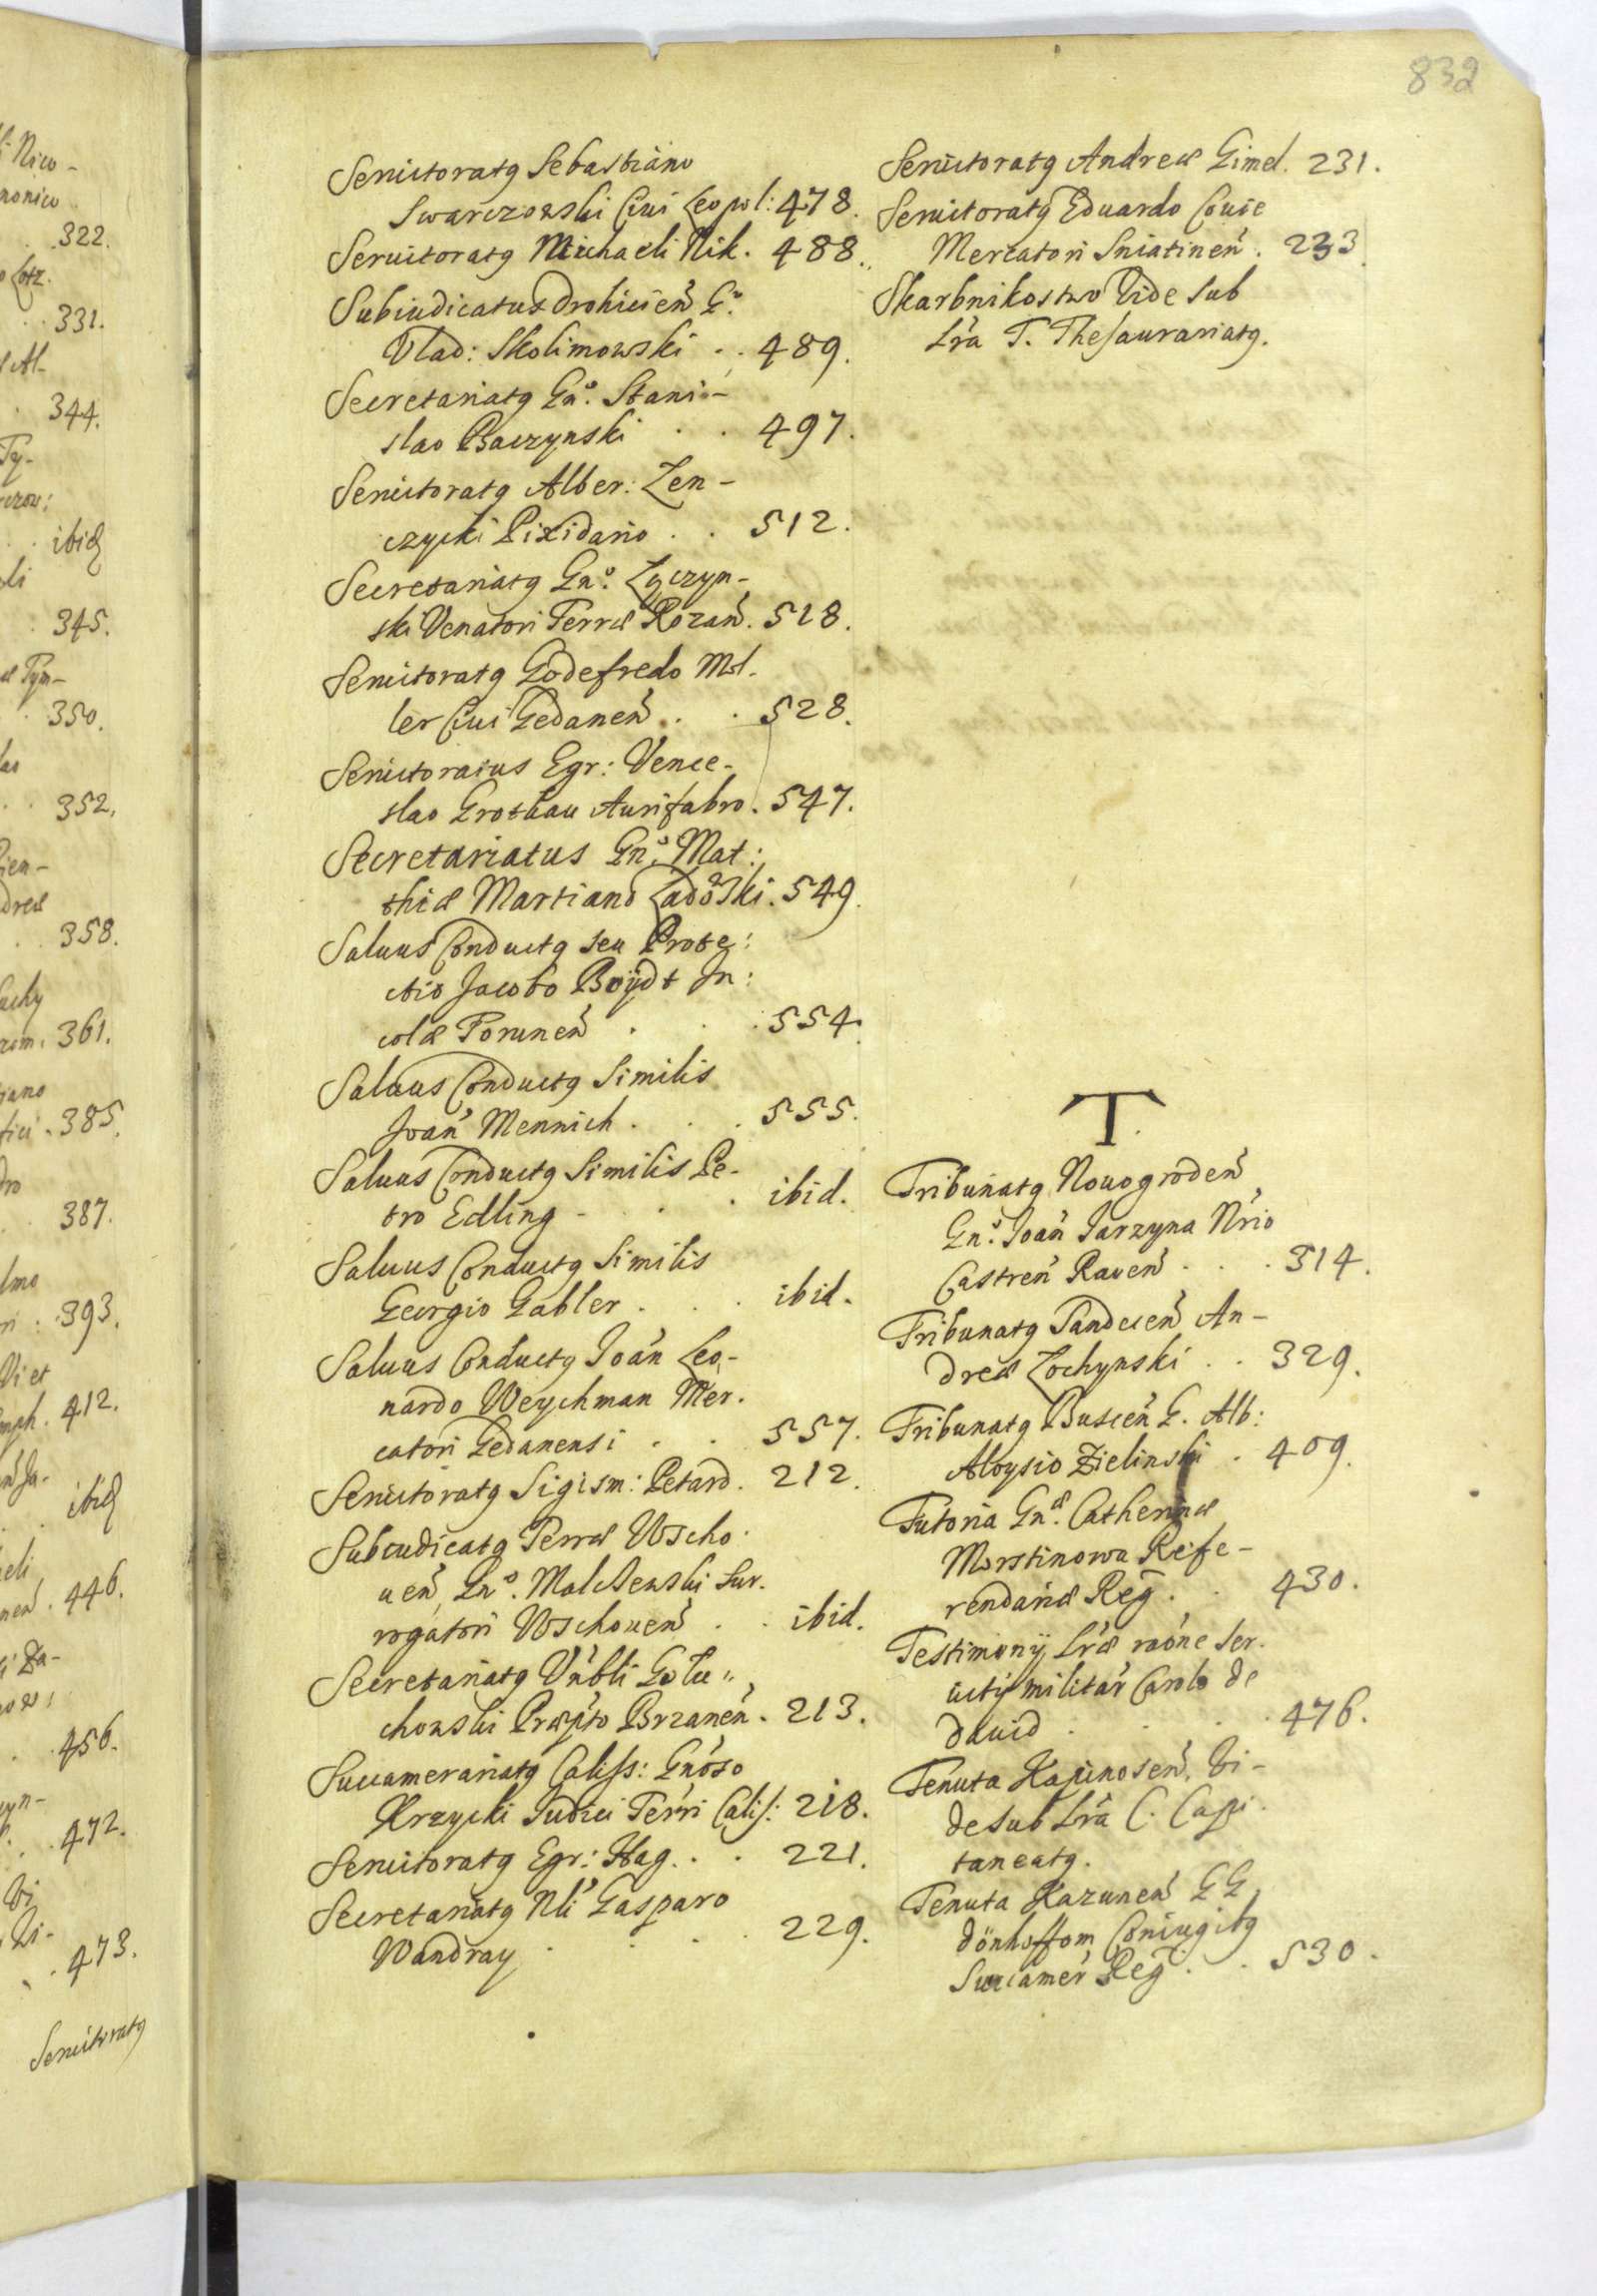 832
Servitoratq Sebastiano
Swarczowski Civi Leopol: 478.
Servitoratq Michaeli Nik. 488.
Subiudicatus Drohicień G°
Vlad: Skolimowski . . 489.
Secretariatq Gn°. Stani-
slao Baczynski . . 497.
Servitoratq Alber: Len-
czycki Pixidario . . 512.
Secretariatq Gn°. Lyczyn-
ski Venatori Terræ Rozań. 518.
Servitoratq Godefredo Mil.
ler Civi Gedaneń . . 528.
Servitoratus Egr: Vence-
slao Grothau Aurifabro. 547.
Secretariatus Gn°. Mat:
thiæ Martiano Ladoski. 549.
Salvus Conductq seu Prote:
ctio Jacobo Boydt In:
colæ Toruneń . . . 554.
Salvus Conductq Similis
Joań Mennich . . . 555.
Salvus Conductq Similis Pe-
tro Edling - . . . ibid.
Salvus Conductq Similis
Georgio Gabler . . . ibid.
Salvus Conductq Joań Leo-
nardo Weychman Mer.
catori Gedanensi . . 557.
Servitoratq Sigism: Petard. 212.
Subiudicatq Terræ Wscho-
ueń, Gn°. Malchewski Sur.
rogatori Wschoueń . . ibid.
Secretariatq Vńbli Golu„
chowski Præfto Brzaneń. 213.
Succamerariatq Caliss: Gnóso
Krzycki Judici Terri Calis: 218.
Servitoratq Egr: Hag. . . 221.
Secretariatq Nli Gasparo
Wandray . . . . 229.
Servitoratq Andreæ Gimel. 231.
Servitoratq Eduardo Couie
Mercatori Sniatineń . 233.
Skarbnikostwo Vide sub
Lrá T. Thesaurariatq.
T.
Tribunatq Nouogrodeń
Gn°. Joań Jarzyna Nrio
Castreń Raueń . . . 314.
Tribunatq Sandeceń An-
dreæ Zochynski . . 329.
Tribunatq Busceń G. Alb:
Aloysio Zielinski . 409.
Tutoria Gnæ. Catherinæ
Morstinowa Refe-
rendariæ Reg̃ . . 430.
Testimonij Lræ raóne ser.
uitij militar Carolo de
David . . . . 476.
Tenuta Kapinoseń, Vi-
de sub Lrá C. Capi-
taneatq.
Tenuta Kazuneń GG
Dönhoffom Coniugibq
Succamer Reg̃ . . 530.
322.
331.
344.
ibid
345.
350.
352.
358.
361.
385.
387.
393.
412.
ibid
446.
456.
472.
473.
Servitoratq